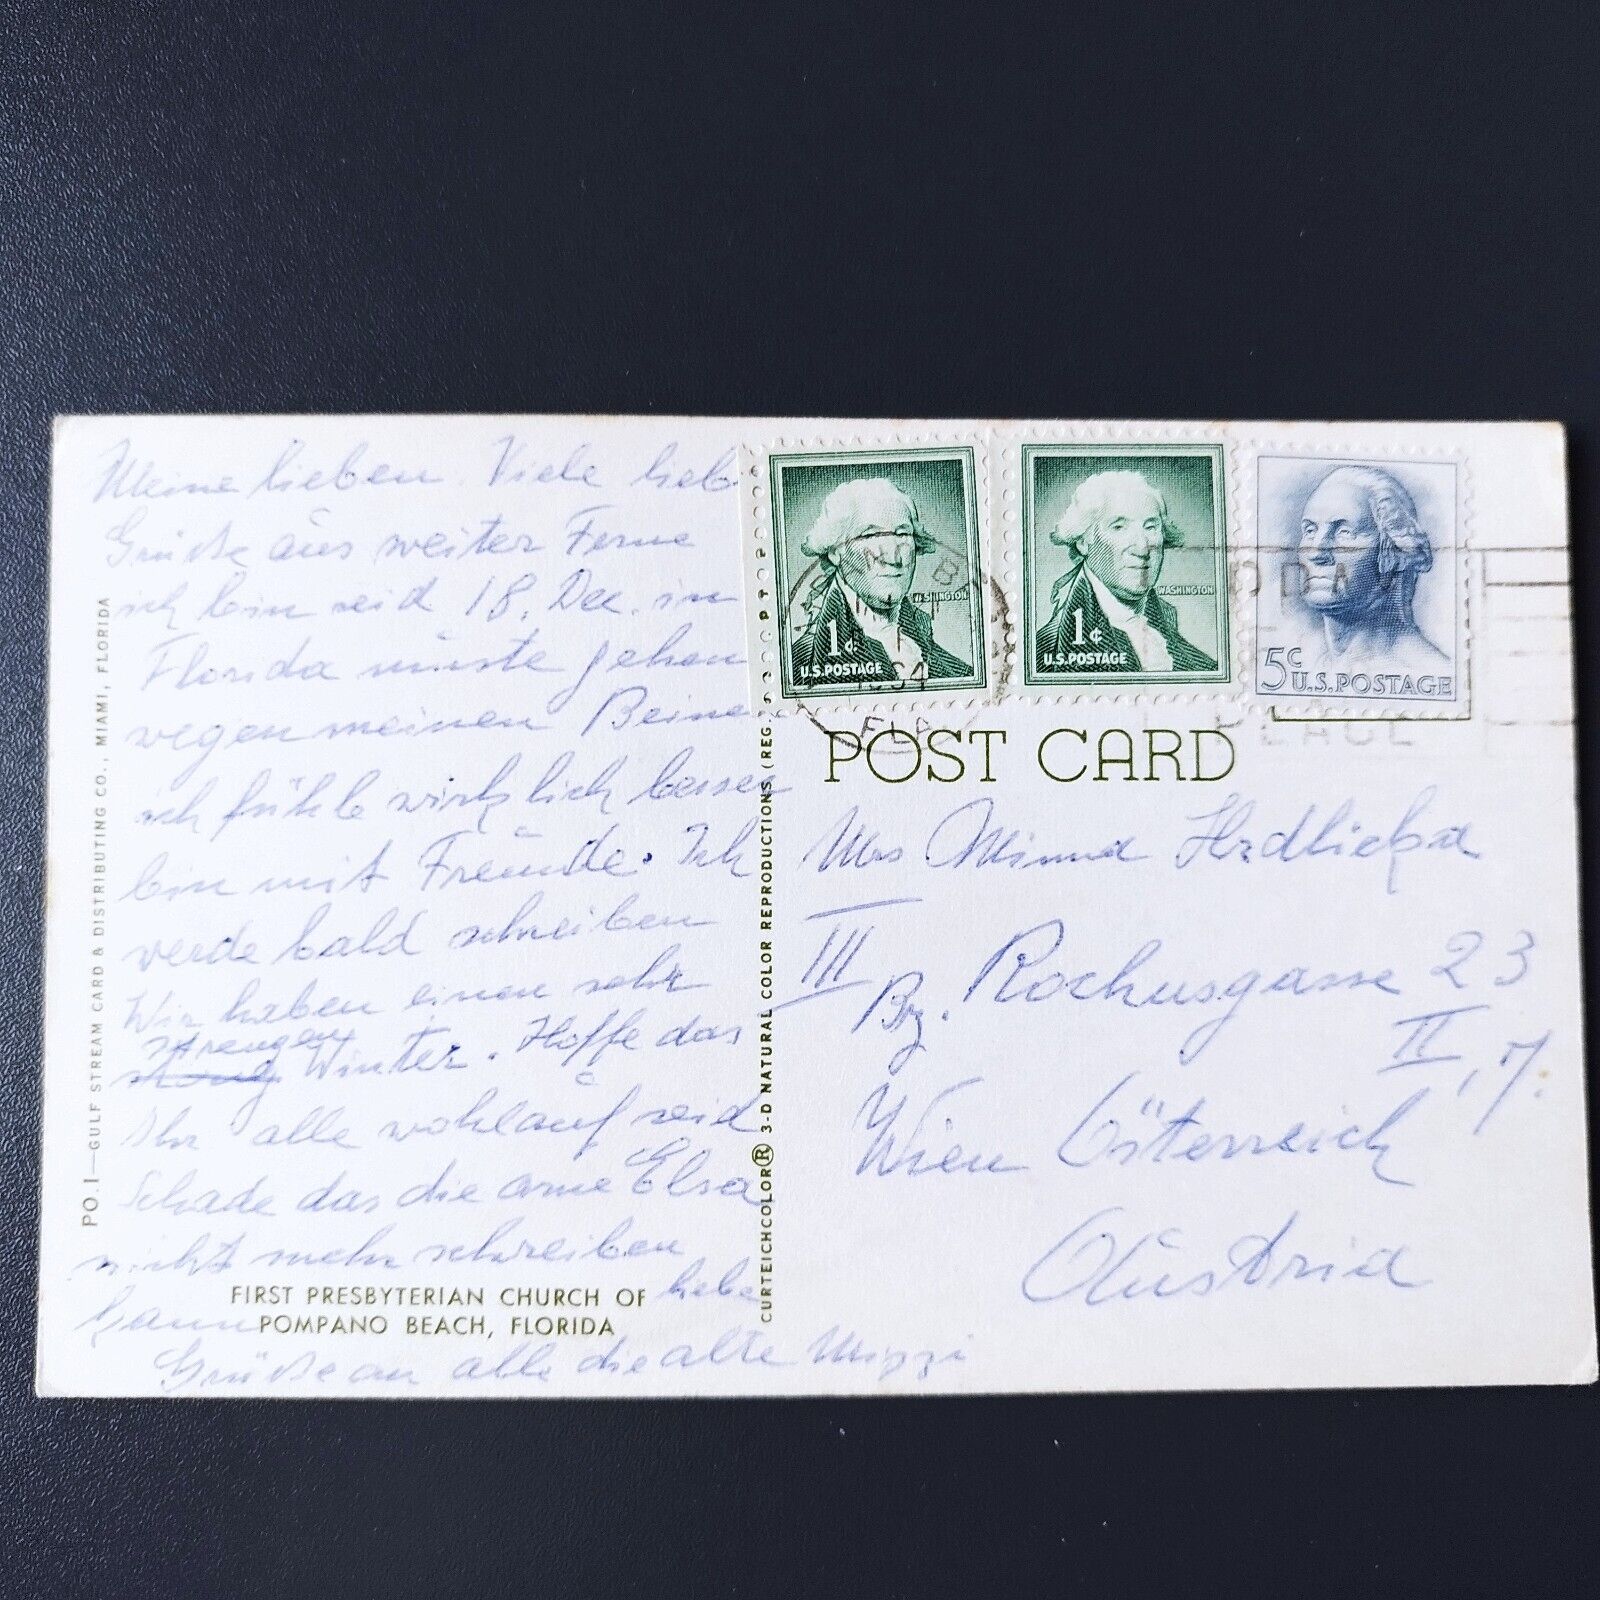 Meine lieben. Viele lieb
Grüße aus weiter Ferne
ich bin seid 18. Dec. in
Florida müste gehen
wegen meinen Beine
ich fühle wirklich besser
bin mit Freunde. Ich
werde bald schreiben
Wir haben einen sehr
strengen
Winter. Hoffe das
Ihr alle wohlauf seid
Schade das die arme Elsa
nicht mehr schreiben
kann liebe
Grüße an alle die alte Mizzi
FIRST PRESBYTERIAN CHURCH OF
POMPANO BEACH, FLORIDA
PO.1—GULF STREAM CARD & DISTRIBUTING CO., MIAMI, FLORIDA
CURTEICHCOLOR® 3-D NATURAL COLOR REPRODUCTIONS (REG.
WASHINGTON
1¢
U.S. POSTAGE
WASHINGTON
1¢
U.S. POSTAGE
5c
U.S. POSTAGE
FLA
POST CARD
Mrs Minna Hrdlicka
III Bz. Rochusgasse 23
II, 7.
Wien Österreich
Austria